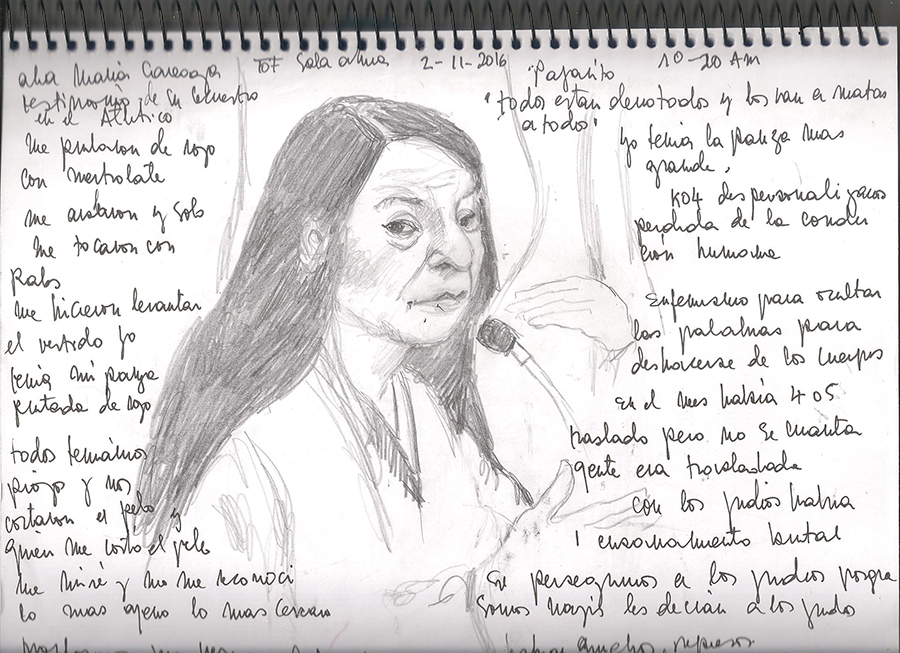 Ana María Careaga
testimonio de su secuestro
en el Atlético
TOF Sala
2-11-2016
10-20 AM
me pintaron de rojo
con mertiolate
me ataron y solo
me tocaron con
palos
me hicieron levantar
el vestido yo
tenía mi panza
pintada de rojo
todos teníamos
piojos y nos
cortaron el pelo y
quien me cortó el pelo
me miré y no me reconocí
lo mas ajeno lo mas cercano
"Pajarito
"todos estan derrotados y los van a matar
a todos"
yo tenia la panza mas
grande.
K04 despersonalizarnos
perdida de la condi
ción humana
Eufemismo para ocultar
las palabras para
deshacerse de los cuerpos
en el mes había 4 o 5
traslado pero no se cuanta
gente era trasladada
con los judíos había
1 ensañamiento brutal
perseguimos a los judios porque
somos nazis les decían a los judios